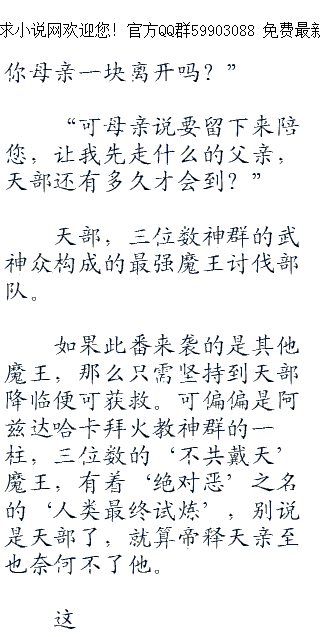 求小说网欢迎您！官方QQ群59903088 免费最新
你母亲一块离开吗？”
“可母亲说要留下来陪
您，让我先走什么的父亲，
天部还有多久才会到？”
天部，三位数神群的武
神众构成的最强魔王讨伐部
队。
如果此番来袭的是其他
魔王，那么只需坚持到天部
降临便可获救。可偏偏是阿
兹达哈卡拜火教神群的一
柱，三位数的‘不共戴天’
魔王，有着‘绝对恶’之名
的‘人类最终试炼’，别说
是天部了，就算帝释天亲至
也奈何不了他。
这